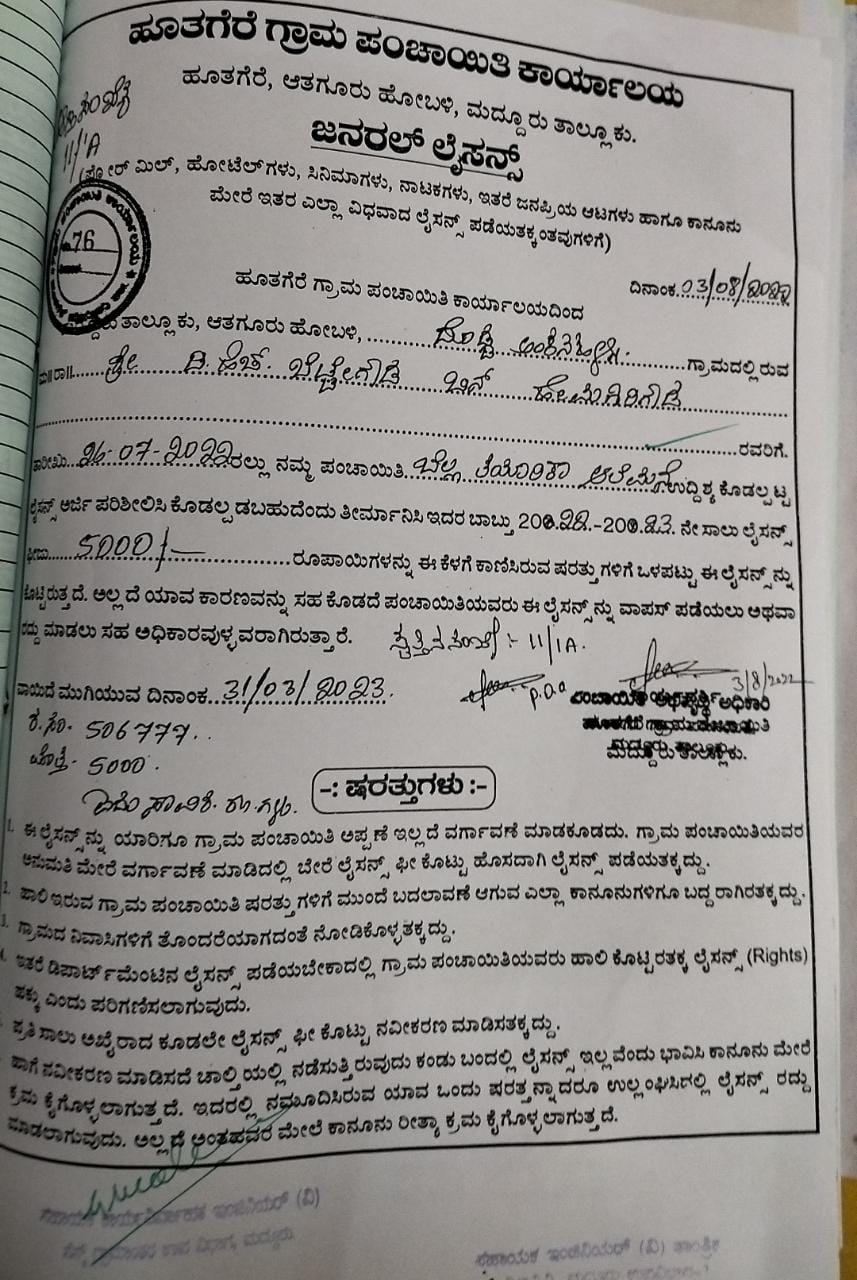 ಹೂತಗೆರೆ ಗ್ರಾಮ ಪಂಚಾಯಿತಿ ಕಾರ್ಯಾಲಯ
ಹೂತಗೆರೆ, ಆತಗೂರು ಹೋಬಳಿ, ಮದ್ದೂರು ತಾಲ್ಲೂಕು.
11/1A
ಜನರಲ್ ಲೈಸನ್ಸ್
(ಫ್ಲೋರ್ ಮಿಲ್, ಹೋಟೆಲ್‌ಗಳು, ಸಿನಿಮಾಗಳು, ನಾಟಕಗಳು, ಇತರೆ ಜನಪ್ರಿಯ ಆಟಗಳು ಹಾಗೂ ಕಾನೂನು
ಮೇರೆ ಇತರ ಎಲ್ಲಾ ವಿಧವಾದ ಲೈಸನ್ಸ್ ಪಡೆಯತಕ್ಕಂತವುಗಳಿಗೆ)
76
ದಿನಾಂಕ 03/08/2022
ಹೂತಗೆರೆ ಗ್ರಾಮ ಪಂಚಾಯಿತಿ ಕಾರ್ಯಾಲಯದಿಂದ
ತಾಲ್ಲೂಕು, ಆತಗೂರು ಹೋಬಳಿ, ದೊಡ್ಡ ಅಂಕನಹಳ್ಳಿ. ಗ್ರಾಮದಲ್ಲಿರುವ
ಮ||ರಾ|| ಶ್ರೀ ದಿ. ಹೆಚ್. ಬೆಟ್ಟೇಗೌಡ ಬಿನ್ ಹೇಮಗಿರಿಗೌಡ
ರವರಿಗೆ.
ತಾರೀಖು 26-07-2022 ರಲ್ಲು ನಮ್ಮ ಪಂಚಾಯಿತಿ ಬೆಲ್ಲ ತಯಾರಿಕಾ ಆಲೆಮನೆ ಉದ್ದಿಶ್ಯ ಕೊಡಲ್ಪಟ್ಟ
ಲೈಸನ್ಸ್ ಅರ್ಜಿ ಪರಿಶೀಲಿಸಿ ಕೊಡಲ್ಪಡಬಹುದೆಂದು ತೀರ್ಮಾನಿಸಿ ಇದರ ಬಾಬ್ತು 200.22.-200.23. ನೇ ಸಾಲು ಲೈಸನ್ಸ್
ಫೀಜು 5000/- ರೂಪಾಯಿಗಳನ್ನು ಈ ಕೆಳಗೆ ಕಾಣಿಸಿರುವ ಷರತ್ತುಗಳಿಗೆ ಒಳಪಟ್ಟು ಈ ಲೈಸನ್ಸ್‌ನ್ನು
ಕೊಟ್ಟಿರುತ್ತದೆ. ಅಲ್ಲದೆ ಯಾವ ಕಾರಣವನ್ನು ಸಹ ಕೊಡದೆ ಪಂಚಾಯಿತಿಯವರು ಈ ಲೈಸನ್ಸ್‌ನ್ನು ವಾಪಸ್ ಪಡೆಯಲು ಅಥವಾ
ರದ್ದು ಮಾಡಲು ಸಹ ಅಧಿಕಾರವುಳ್ಳವರಾಗಿರುತ್ತಾರೆ. ಸ್ವತ್ತಿನ ಸಂಖ್ಯೆ :- 11/1A.
ವಾಯಿದೆ ಮುಗಿಯುವ ದಿನಾಂಕ 31/03/2023.
3/8/2022
ಪಂಚಾಯಿತಿ ಅಭಿವೃದ್ಧಿ ಅಧಿಕಾರಿ
ಮದ್ದೂರು ತಾಲ್ಲೂಕು.
ಕ.ಸಂ. 506777.
ಮೊತ್ತ - 5000.
-: ಷರತ್ತುಗಳು :-
1. ಈ ಲೈಸನ್ಸ್‌ನ್ನು ಯಾರಿಗೂ ಗ್ರಾಮ ಪಂಚಾಯಿತಿ ಅಪ್ಪಣೆ ಇಲ್ಲದೆ ವರ್ಗಾವಣೆ ಮಾಡಕೂಡದು. ಗ್ರಾಮ ಪಂಚಾಯಿತಿಯವರ
ಅನುಮತಿ ಮೇರೆ ವರ್ಗಾವಣೆ ಮಾಡಿದಲ್ಲಿ ಬೇರೆ ಲೈಸನ್ಸ್ ಫೀ ಕೊಟ್ಟು ಹೊಸದಾಗಿ ಲೈಸನ್ಸ್ ಪಡೆಯತಕ್ಕದ್ದು.
2. ಹಾಲಿ ಇರುವ ಗ್ರಾಮ ಪಂಚಾಯಿತಿ ಷರತ್ತುಗಳಿಗೆ ಮುಂದೆ ಬದಲಾವಣೆ ಆಗುವ ಎಲ್ಲಾ ಕಾನೂನುಗಳಿಗೂ ಬದ್ದರಾಗಿರತಕ್ಕದ್ದು.
3. ಗ್ರಾಮದ ನಿವಾಸಿಗಳಿಗೆ ತೊಂದರೆಯಾಗದಂತೆ ನೋಡಿಕೊಳ್ಳತಕ್ಕದ್ದು.
4. ಇತರೆ ಡಿಪಾರ್ಟ್‌ಮೆಂಟಿನ ಲೈಸನ್ಸ್ ಪಡೆಯಬೇಕಾದಲ್ಲಿ ಗ್ರಾಮ ಪಂಚಾಯಿತಿಯವರು ಹಾಲಿ ಕೊಟ್ಟಿರತಕ್ಕ ಲೈಸನ್ಸ್ (Rights)
ಹಕ್ಕು ಎಂದು ಪರಿಗಣಿಸಲಾಗುವುದು.
ಪ್ರತಿ ಸಾಲು ಅಖೈರಾದ ಕೂಡಲೇ ಲೈಸನ್ಸ್ ಫೀ ಕೊಟ್ಟು ನವೀಕರಣ ಮಾಡಿಸತಕ್ಕದ್ದು.
ಹಾಗೆ ನವೀಕರಣ ಮಾಡಿಸದೆ ಚಾಲ್ತಿಯಲ್ಲಿ ನಡೆಸುತ್ತಿರುವುದು ಕಂಡು ಬಂದಲ್ಲಿ ಲೈಸನ್ಸ್ ಇಲ್ಲವೆಂದು ಭಾವಿಸಿ ಕಾನೂನು ಮೇರೆ
ಕ್ರಮ ಕೈಗೊಳ್ಳಲಾಗುತ್ತದೆ. ಇದರಲ್ಲಿ ನಮೂದಿಸಿರುವ ಯಾವ ಒಂದು ಷರತ್ತನ್ನಾದರೂ ಉಲ್ಲಂಘಿಸಿದಲ್ಲಿ ಲೈಸನ್ಸ್ ರದ್ದು
ಮಾಡಲಾಗುವುದು. ಅಲ್ಲದೆ ಅಂತಹವರ ಮೇಲೆ ಕಾನೂನು ರೀತ್ಯಾ ಕ್ರಮ ಕೈಗೊಳ್ಳಲಾಗುತ್ತದೆ.
ಸಹಾಯಕ ಕಾರ್ಯನಿರ್ವಾಹಕ ಇಂಜಿನಿಯರ್ (ವಿ)
ಸಹಾಯಕ ಇಂಜಿನಿಯರ್ (ವಿ) ತಾಂತ್ರಿಕ